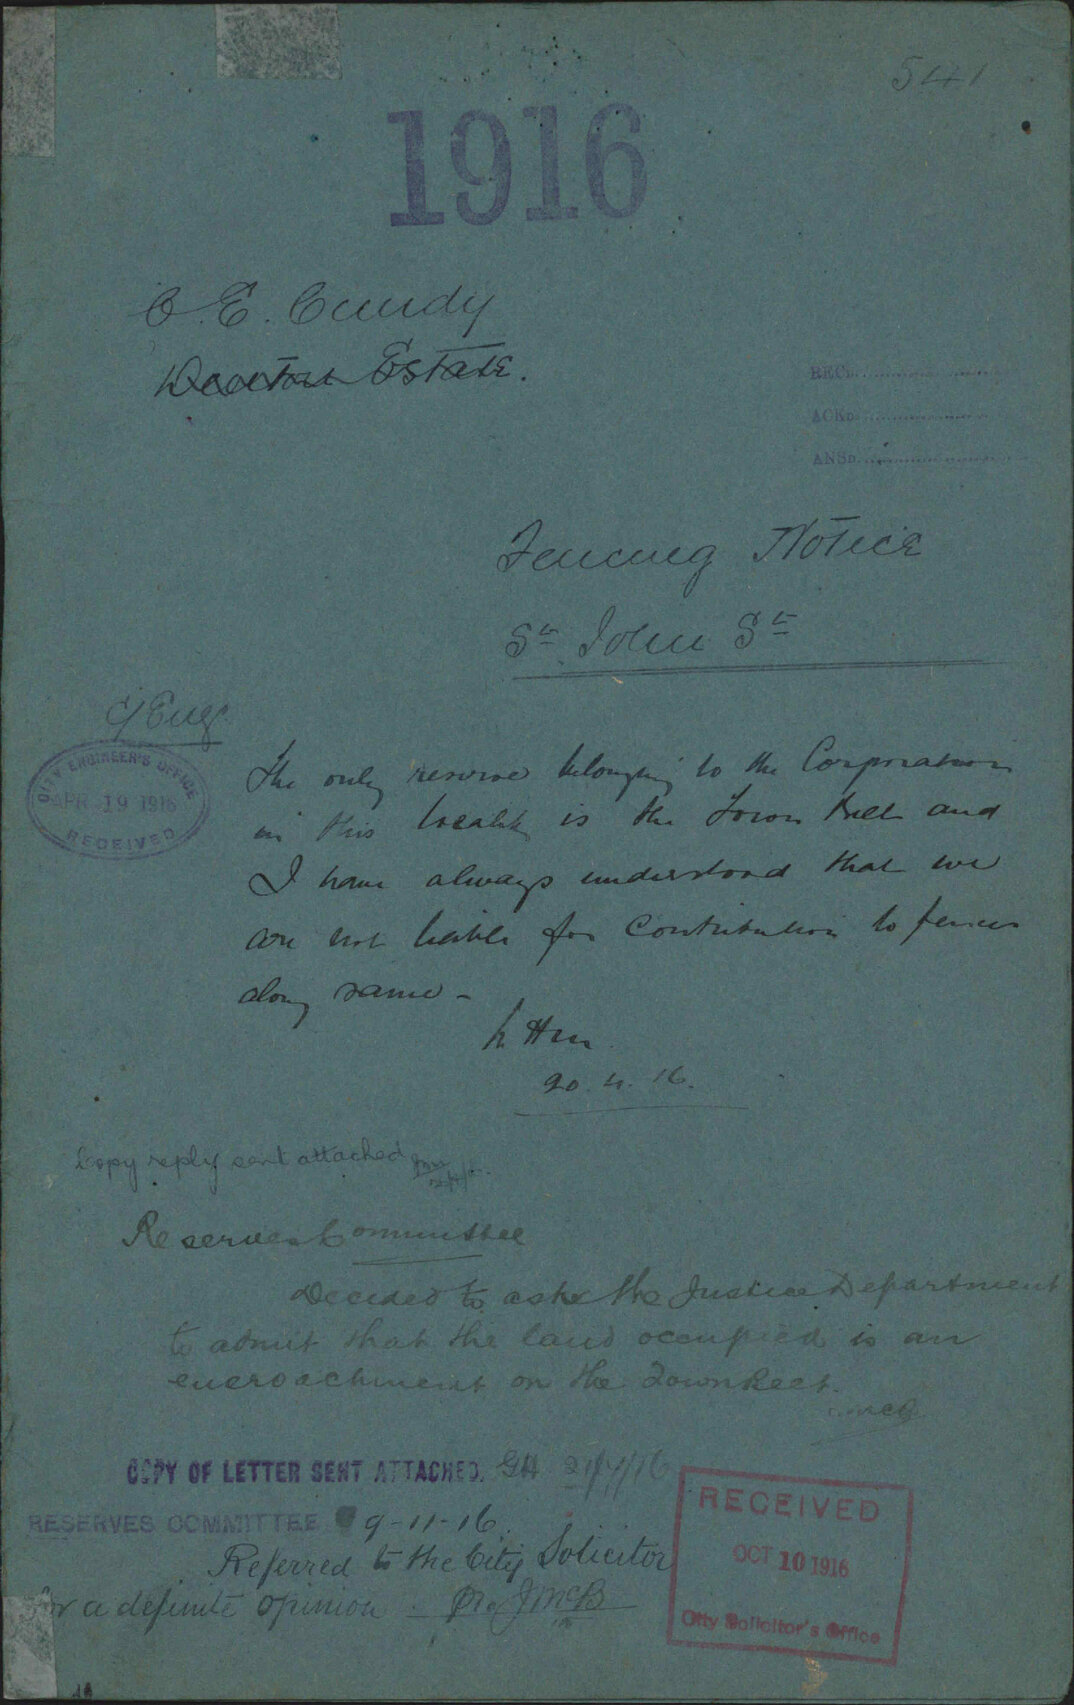 541
1916
C. E. Cundy
Estate.
RECD.
ACKD.
ANSD.
Fencing Notice
St. John St
C/Eng.
CITY ENGINEER'S OFFICE
APR 19 1916
RECEIVED
The only reserve belonging to the Corporation
in this locality is the Town Belt and
I have always understood that we
are not liable for contribution to fences
along same –
20.4.16.
Copy reply sent attached
Reserves Committee
Decided to ask the Justice Department
to admit that the land occupied is an
encroachment on the Town Belt.
COPY OF LETTER SENT ATTACHED. 21/7/16
RESERVES COMMITTEE 9-11-16.
Referred to the City Solicitor
for a definite opinion. JMcB
RECEIVED
OCT 10 1916
City Solicitor's Office